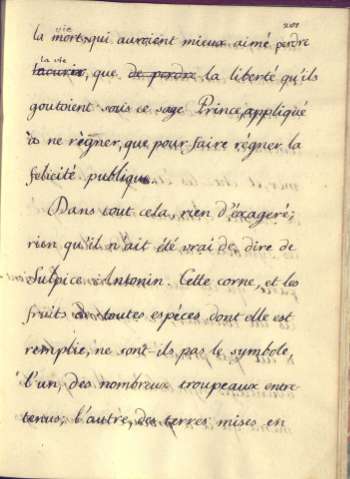 201
la mort, qui auroient mieux aimé perdre
la vie
que de perdre la liberté qu'ils
goutoient sous ce sage Prince appliqué
à ne règner, que pour faire régner la
felicité publique.
Dans tout cela, rien d'éxageré;
rien qu'il n'ait été vrai de dire de
Sulpice Antonin. Cette corne, et les
fruits de toutes espèces dont elle est
remplie, ne sont-ils pas le symbole,
l'un, des nombreux troupeaux entre-
tenus; l'autre, des terres mises en